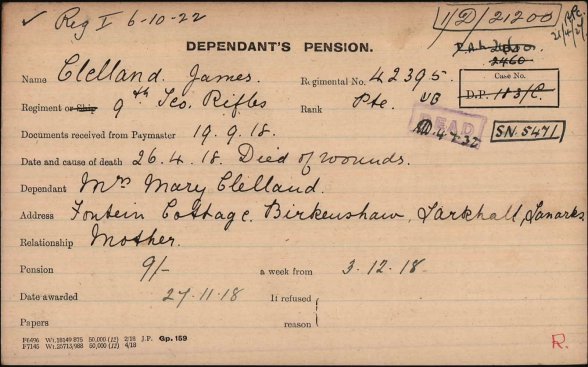 ✓ Reg I 6-10-22
1/D/21200
DEPENDANT'S PENSION.
Name Clelland. James. Regimental No. 42395.
Case No.
D.P. 183/C.
Regiment or Ship 9th Sco. Rifles Rank Pte. UB
DEAD
4.7.32
SN.5471
Documents received from Paymaster 19.9.18.
Date and cause of death 26.4.18. Died of wounds.
Dependant Mrs Mary Clelland.
Address Fontein Cottage, Birkenshaw, Larkhall, Lanarks
Relationship Mother.
Pension 9/- a week from 3.12.18.
Date awarded 27.11.18 If refused
Papers reason
R.
F6496 Wt.18149/875 50,000 (12) 2/18 J.P. Gp. 159
F7145 Wt.25713/988 50,000 (12) 4/18